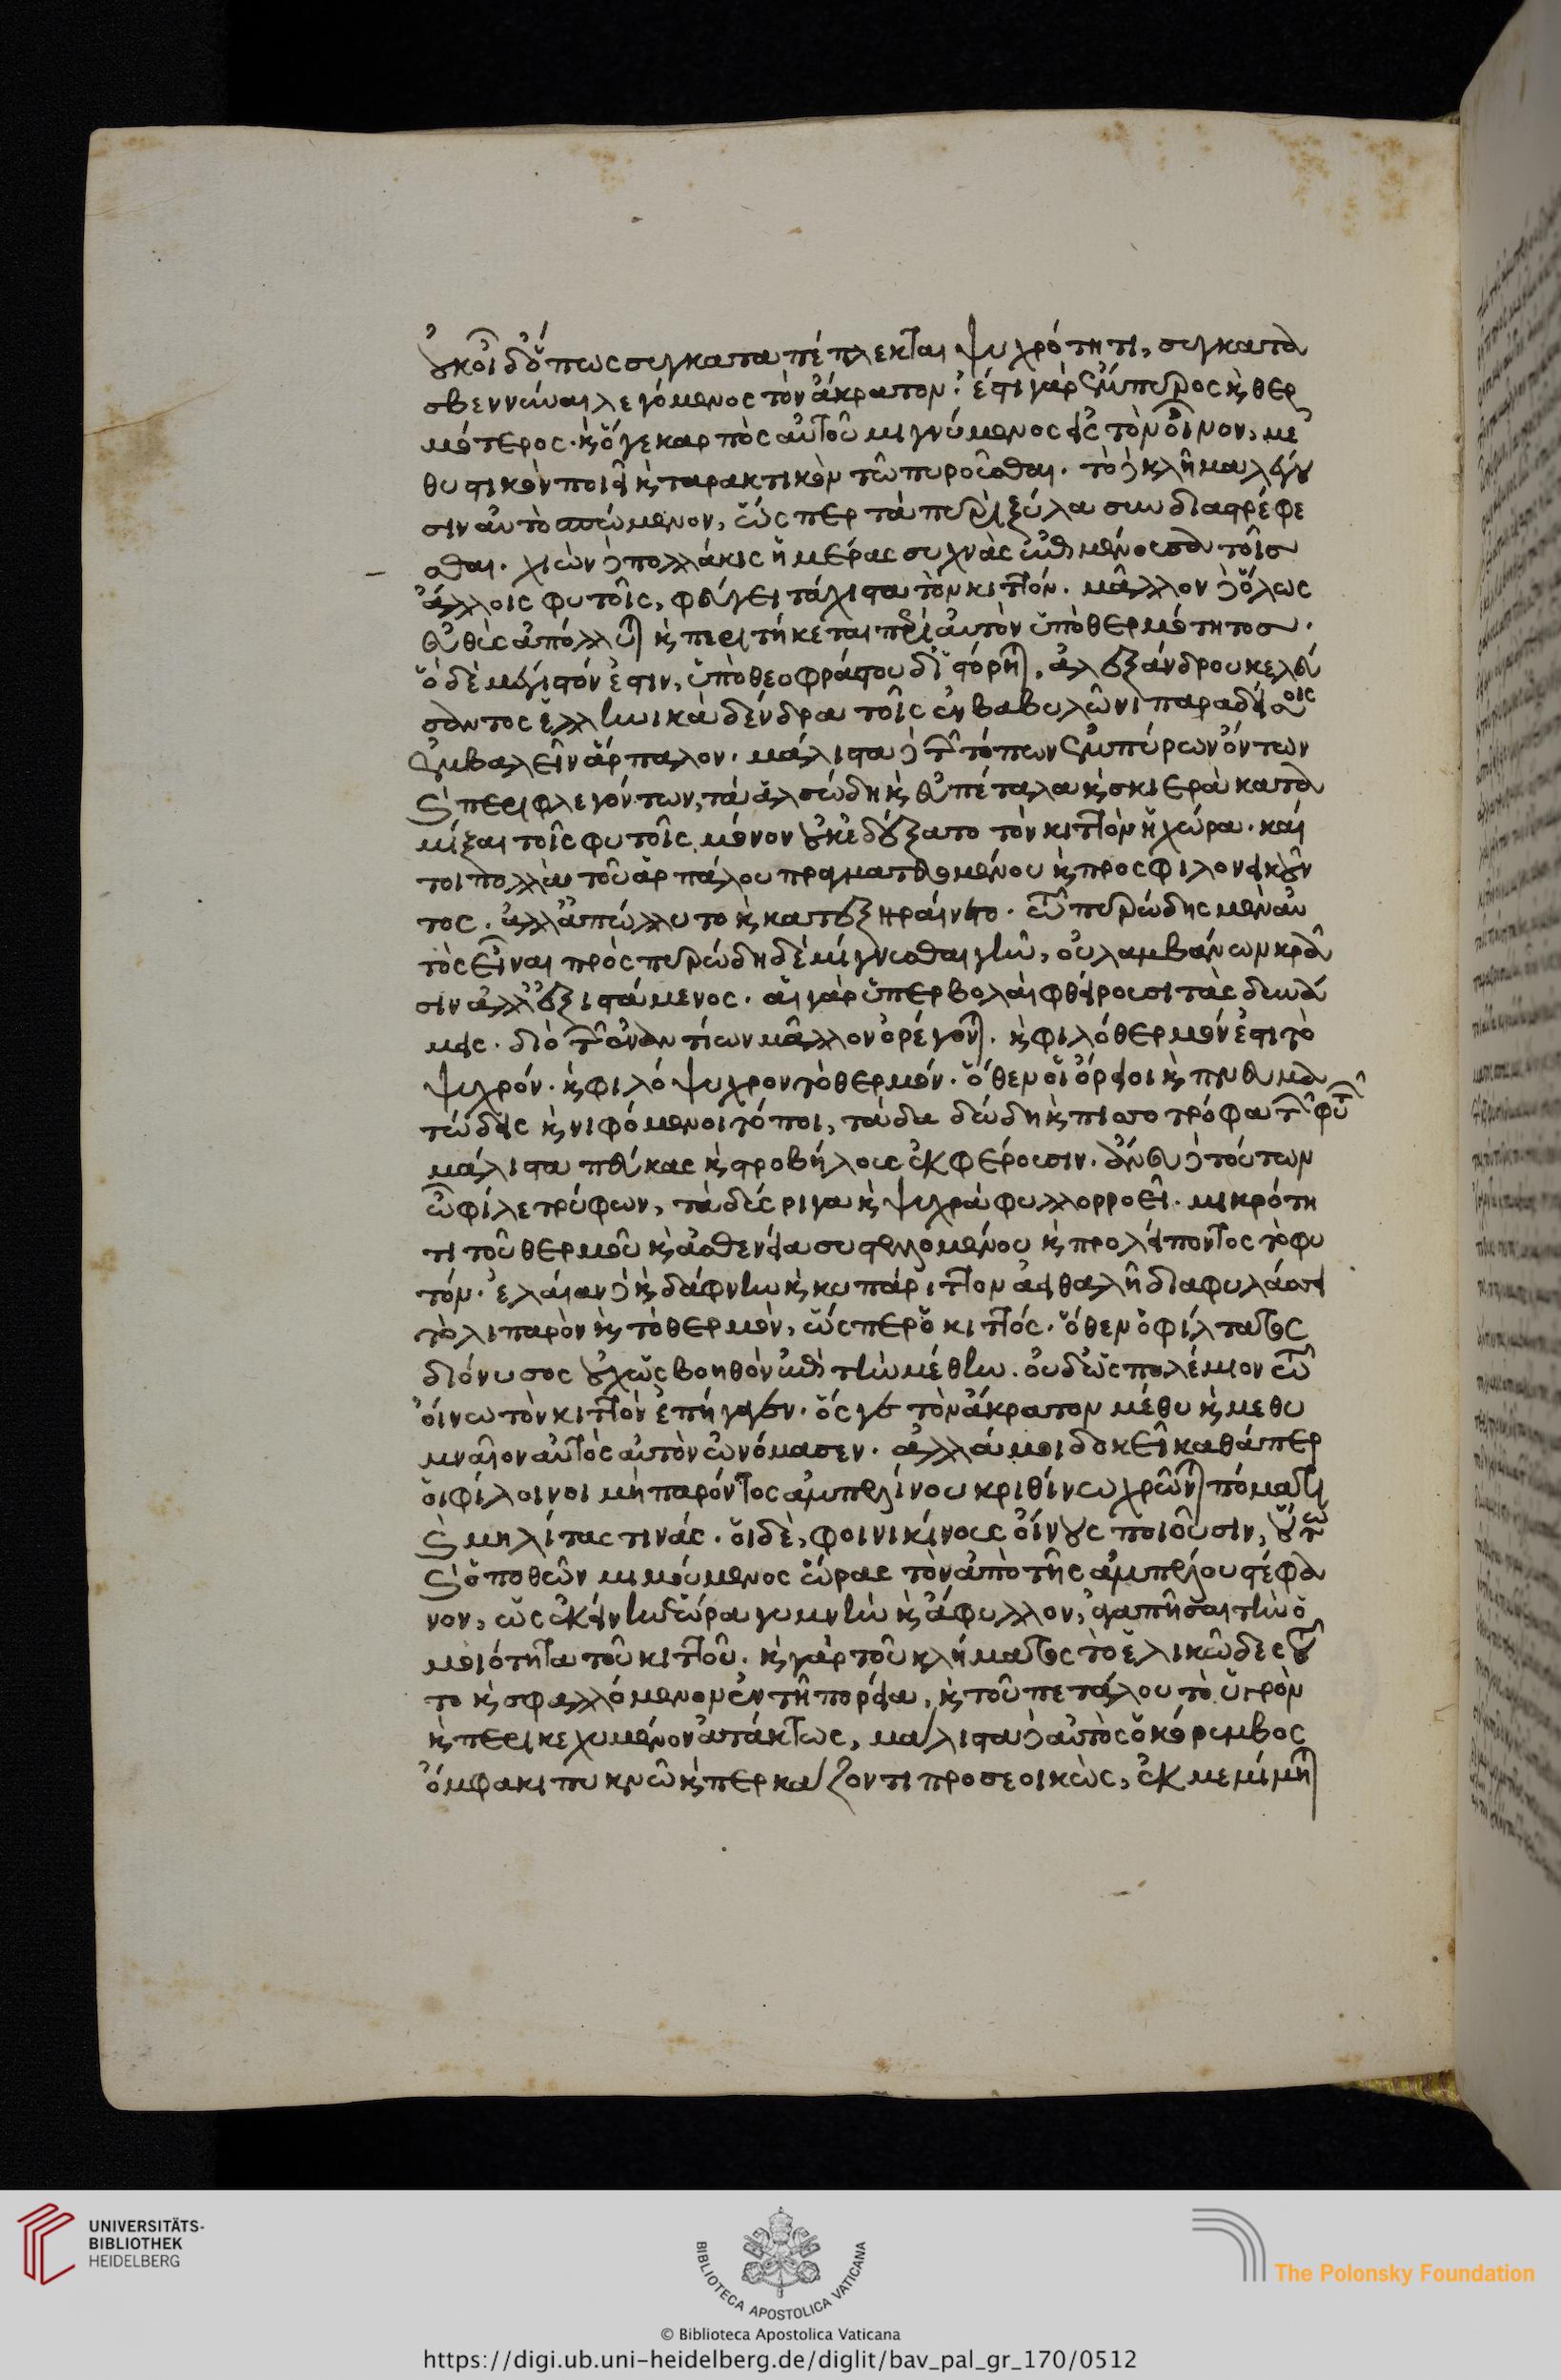 οὐκ οἶδ' ὅπως συγκαταπέπλεκται ψυχρότητι, συγκατα
σβεννύναι λεγόμενος τὸν ἄκρατον. ἔστι γὰρ ἔμπυρος ϗ θερ
μότερος. ϗ ὅ γε καρπὸς αὐτοῦ μιγνύμενος εἰς τὸν οἶνον, με
θυστικὸν ποιεῖ ϗ ταρακτικὸν τῶ πυροῦσθαι. τὸ δὲ κλῆμα λέγου
σιν αὐτὸ σπώμενον, ὥσπερ τὰ πυρὶ ξύλα συνδιαστρέφε
σθαι. χιὼν δὲ πολλάκις ἡμέρας συχνὰς ἐπιμένουσα τοῖσ
ἄλλοις φυτοῖς, φεύγει τάχιστα τὸν κιττόν. μᾶλλον δὲ ὅλως
εὐθὺς ἀπόλλυται ϗ περιτήκεται περὶ αὐτὸν ὑπὸ θερμότητοσ.
ὃ δὲ μέγιστόν ἐστιν, ὑπὸ θεοφράστου δ' ἱστόρηται, ἀλεξάνδρου κελεύ
σαντος ἑλληνικὰ δένδρα τοῖς ἐν βαβυλῶνι παραδείσοις
ἐμβαλεῖν ἅρπαλον. μάλιστα δὲ τῶν τόπων ἐμπύρων ὄντων
ϗ περιφλεγόντων, τὰ ἀλσώδη ϗ εὐπέταλα ϗ σκιερὰ κατα
μίξαι τοῖς φυτοῖς μόνον οὐκ ἐδέξατο τὸν κιττὸν ἡ χώρα. καί
τοι πολλὰ τοῦ ἁρπάλου πραγματευομένου ϗ προσφιλονεικοῦν
τος. ἀλλ' ἀπώλλυτο ϗ κατεξηραίνετο. τῶ πυρώδης μὲν αὐ
τὸς εἶναι πρὸς πυρώδη δὲ μίγνυσθαι γῆν, οὐ λαμβάνων κρᾶ
σιν ἀλλ' ἐξιστάμενος. αἱ γὰρ ὑπερβολαὶ φθείρουσι τὰς δυνά
μεις. διὸ τῶν ἐναντίων μᾶλλον ὀρέγονται. ϗ φιλόθερμόν ἐστι τὸ
ψυχρόν. ϗ φιλόψυχρον τὸ θερμόν. ὅθεν οἱ ὄρειοι ϗ πνευμα
τώδεις ϗ νιφόμενοι τόποι, τὰ δαδώδη ϗ πισσοτρόφα τῶν φυτῶν
μάλιστα πεύκας ϗ στροβήλους ἐκφέρουσιν. ἄνευ δὲ τούτων
ὦ φίλε τρύφων, τὰ δύσριγα ϗ ψυχρὰ φυλλορροεῖ. μικρότη
τι τοῦ θερμοῦ ϗ ἀσθενεία συστελλομένου ϗ προλείποντος τὸ φυ
τόν. ἐλαίαν δὲ ϗ δάφνην ϗ κυπάριττον ἀειθαλῆ διαφυλάσσει
τὸ λιπαρὸν ϗ τὸ θερμὸν, ὥσπερ ὁ κιττός. ὅθεν ὁ φίλτατος
διόνυσος οὐχ ὡς βοηθὸν ἐπὶ τὴν μέθην. οὐδ' ὡς πολέμιον τῶ
οἴνω τὸν κιττὸν ἐπήγαγεν. ὅς γε τὸν ἄκρατον μέθυ ϗ μεθυ
μναῖον αὐτὸς αὑτὸν ὠνόμασεν. ἀλλά μοι δοκεῖ καθάπερ
οἱ φίλοινοι μὴ παρόντος ἀμπελίνου κριθίνω χρῶνται πόματι
ϗ μηλίτας τινάς. οἱ δὲ, φοινικίνους οἴνους ποιοῦσιν, οὕτω
ϗ ὁ ποθῶν μιμούμενος ὥρας τὸν ἀπὸ τῆς ἀμπέλου στέφα
νον, ὡς ἐκείνην ἑώρα γυμνὴν ϗ ἄφυλλον, ἀγαπῆσαι τὴν ὁ
μοιότητα τοῦ κιττοῦ. ϗ γὰρ τοῦ κλήματος τὸ ἑλικῶδες τοῦ
το ϗ σφαλλόμενον ἐν τῆ πορεία, ϗ τοῦ πετάλου τὸ ὑγρὸν
ϗ περικεχυμένον ἀτάκτως, μάλιστα δὲ αὐτὸς ὁ κόρυμβος
ὄμφακι πυκνῶ ϗ περκάζοντι προσεοικὼς, ἐκμεμίμηται
UNIVERSITÄTS-
BIBLIOTHEK
HEIDELBERG
BIBLIOTECA APOSTOLICA VATICANA
The Polonsky Foundation
© Biblioteca Apostolica Vaticana
https://digi.ub.uni-heidelberg.de/diglit/bav_pal_gr_170/0512